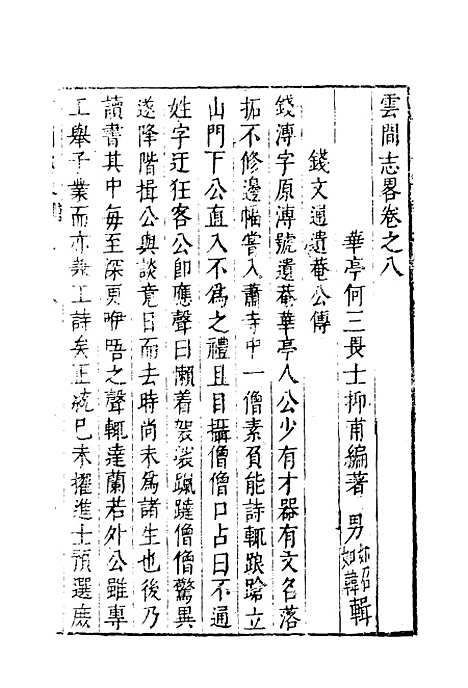 雲間志畧卷之八
華亭何三畏士抑甫編著 男如韓如韶輯
錢文通遺菴公傳
錢溥字原溥號遺菴華亭人公少有才器有文名落
拓不修邊幅嘗入蕭寺中一僧素負能詩輒踉蹌立
山門下公直入不為之禮且目攝僧僧口占曰不通
姓字迂狂客公即應聲曰懶着袈裟躐躂僧僧驚異
遂降階揖公與談竟日而去時尚未為諸生也後乃
讀書其中每至深更咿唔之聲輒達蘭若外公雖專
工舉子業而亦兼工詩矣正統己未擢進士預選庶